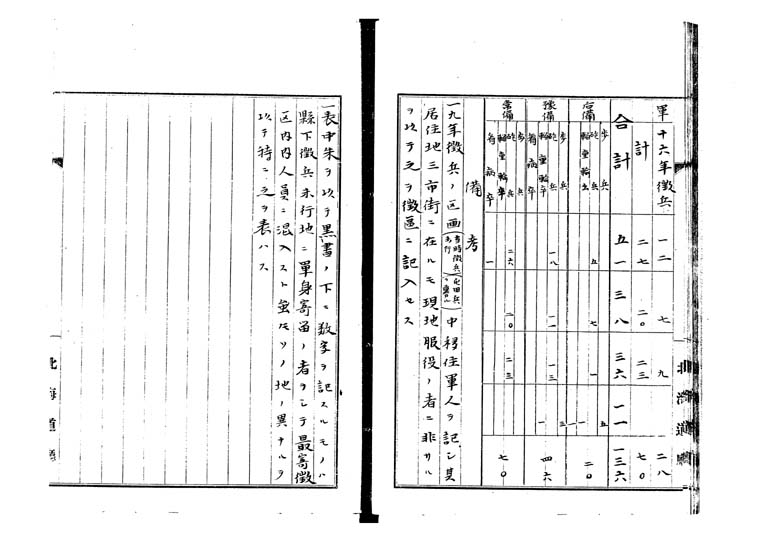 軍 十六年徴兵 一二 七 九 二八
計 二七 二〇 二三 七〇
合計 五一 三八 三六 一一 一三六
后備 歩兵 砲兵 輜重輸卒 五 七 一 五 二〇
豫備 歩兵 砲兵 輜重輸卒 看病卒 一八 一一 一三 三 一 四六
常備 歩兵 砲兵 輜重輸卒 看病卒 二六 一 二〇 二三 七〇
備考
一九年徴兵ノ区画中移住軍人ヲ記シ其
居住地三市街ニ在ルモ現地服役ノ者ニ非サル
ヲ以テ之ヲ徴區ニ記入セス
一表中朱ヲ以テ黒書ノ下ニ数字ヲ記スルモノハ
縣下徴兵未行地ニ單身寄留ノ者ヲシテ最寄徴
区内内人員ニ混入スト雖モソノ地ノ異ナルヲ
以テ特ニ之ヲ表ハス
北海道
北海道